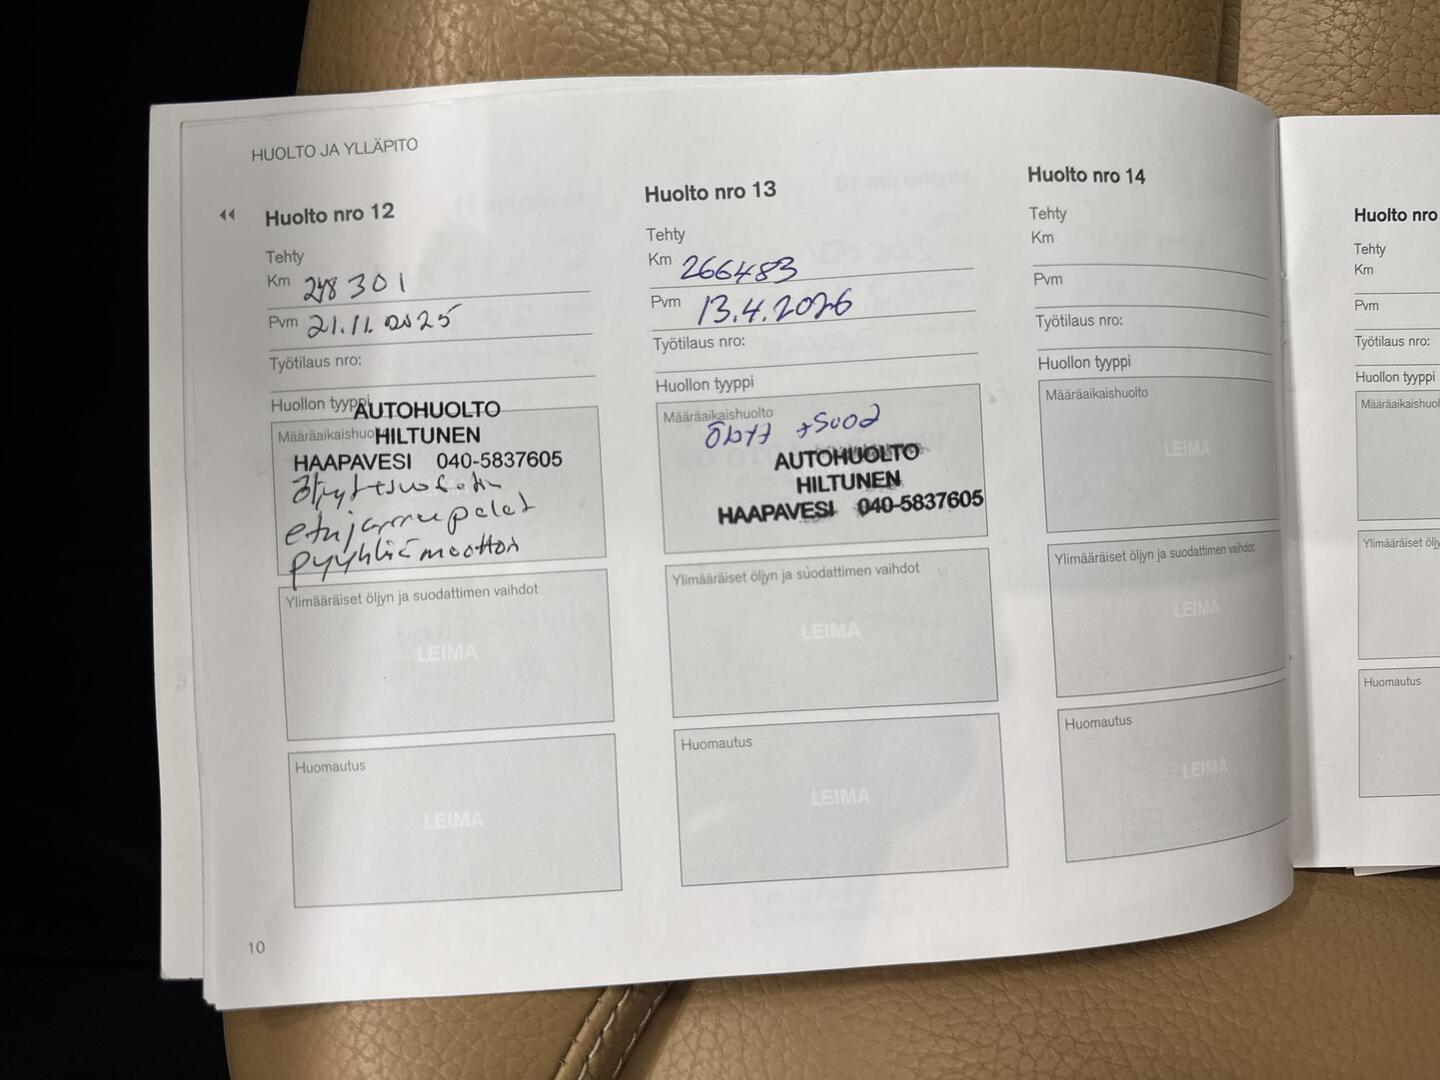 HUOLTO JA YLLÄPITO
Huolto nro 12
Tehty
Km 248 301
Pvm 21.11.2025
Työtilaus nro:
Huollon tyyppi
Määräaikaishuolto
AUTOHUOLTO
HILTUNEN
HAAPAVESI 040-5837605
etujarrupalat
Ylimääräiset öljyn ja suodattimen vaihdot
LEIMA
Huomautus
LEIMA
Huolto nro 13
Tehty
Km 266483
Pvm 13.4.2026
Työtilaus nro:
Huollon tyyppi
Määräaikaishuolto
AUTOHUOLTO
HILTUNEN
HAAPAVESI 040-5837605
Ylimääräiset öljyn ja suodattimen vaihdot
LEIMA
Huomautus
LEIMA
Huolto nro 14
Tehty
Km
Pvm
Työtilaus nro:
Huollon tyyppi
Määräaikaishuolto
LEIMA
Ylimääräiset öljyn ja suodattimen vaihdot
LEIMA
Huomautus
LEIMA
10
Huolto nro
Tehty
Km
Pvm
Työtilaus nro:
Huollon tyyppi
Huomautus